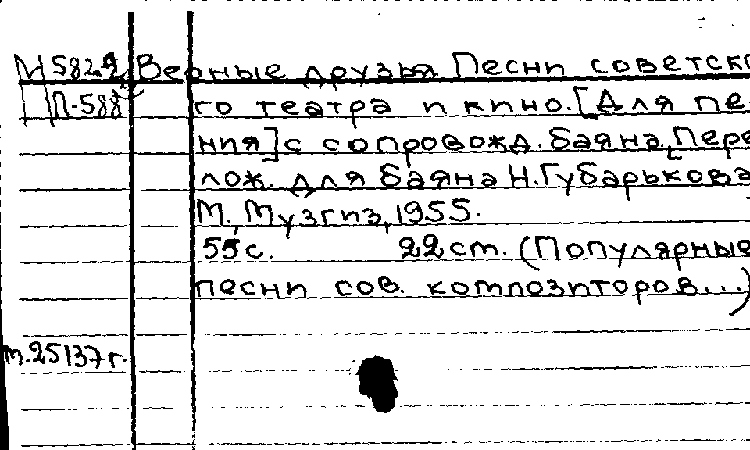 М5829 Верные друзья Песни советско
П-588 го театра и кино. [Для пе
ния] с сопровожд. баяна, [Пере
лож. для баяна Н. Губарькова
М., Музгиз, 1955.
55 с. 22 см. (Популярные
песни сов. композиторов...)
т. 25137 г.